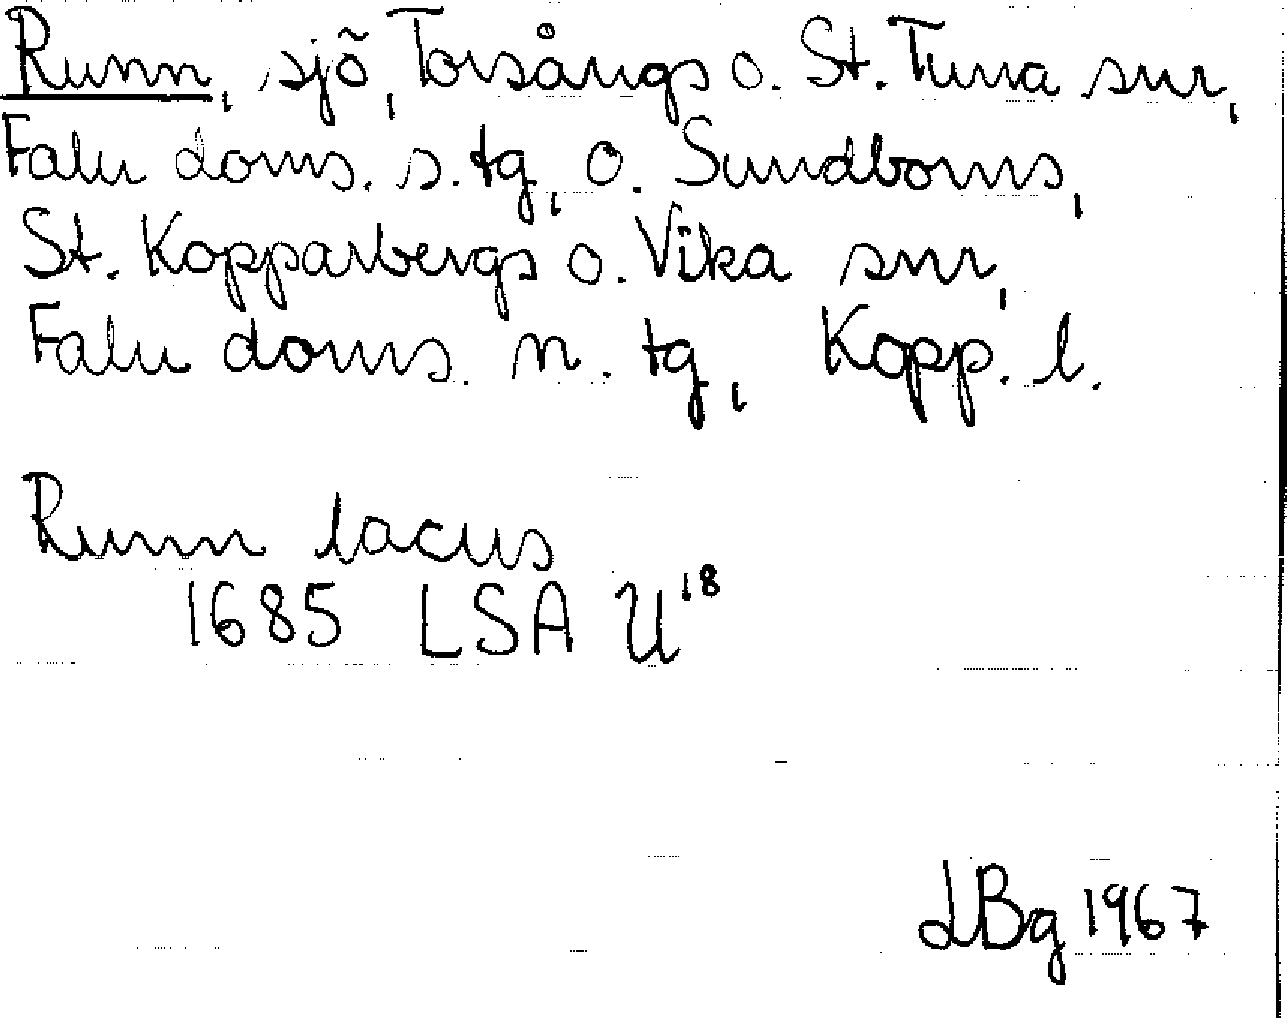 Runn, sjö, Torsångs o. St. Tuna snr,
Falu doms. s. tg, o. Sundborns,
St. Kopparbergs o. Vika snr,
Falu doms. n. tg, Kopp. l.
Runn lacus
1685 LSA U18
LBg 1967